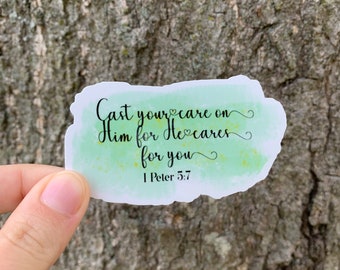 Cast your care on
Him for He cares
for you
1 Peter 5:7